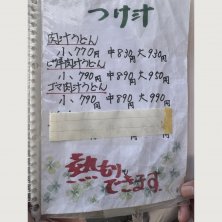 つけ汁
肉汁うどん
小、770円 中830円 大930円
ピリ辛肉汁うどん
小、790円 中890円 大950円
ゴマ肉汁うどん
小、790円 中890円 大990円
熱いのも
できます